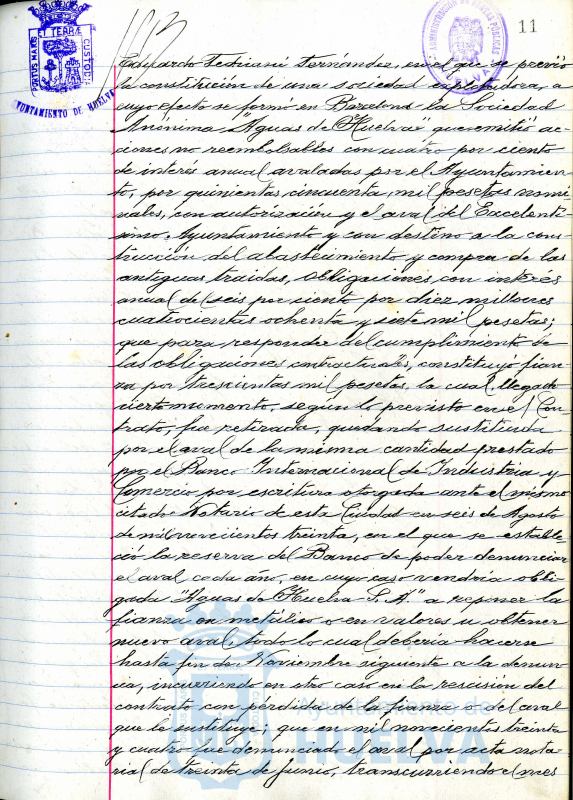 11
Eduardo Fedriani Fernández, en el que se previó
la constitución de una sociedad explotadora, a
cuyo efecto se formó en Barcelona la Sociedad
Anónima "Aguas de Huelva" que emitió ac-
ciones no reembolsables con cuatro por ciento
de interés anual avaladas por el Ayuntamien-
to, por quinientas cincuenta mil pesetas nomi-
nales, con autorización y el aval del Excelentí-
simo Ayuntamiento y con destino a la cons-
trucción del abastecimiento y compra de las
antiguas traidas, obligaciones con interés
anual de seis por ciento por diez millones
cuatrocientas ochenta y siete mil pesetas;
que para responder del cumplimiento de
las obligaciones contractuales, constituyó fian-
za por trescientas mil pesetas la cual, llegado
cierto momento, según lo previsto en el Con-
trato, fue retirada, quedando sustituida
por el aval de la misma cantidad prestado
por el Banco Internacional de Industria y
Comercio por escritura otorgada ante el mismo
citado Notario de esta Ciudad en seis de Agosto
de mil novecientos treinta, en el que se estable-
ció la reserva del Banco de poder denunciar
el aval cada año, en cuyo caso vendría obli-
gada "Aguas de Huelva S.A." a reponer la
fianza en metálico o en valores u obtener
nuevo aval, todo lo cual debería hacerse
hasta fin de Noviembre siguiente a la denun-
cia, incurriendo en otro caso en la rescisión del
contrato con pérdida de la fianza o del aval
que le sustituye; que en mil novecientos treinta
y cuatro fue denunciado el aval por acta nota-
rial de treinta de Junio, transcurriendo el mes
PORTUS MARIS ET TERRAE CUSTODIA
AYUNTAMIENTO DE HUELVA
ADMINISTRACIÓN DE RENTAS PÚBLICAS
HUELVA
Ayuntamiento de
HUELVA